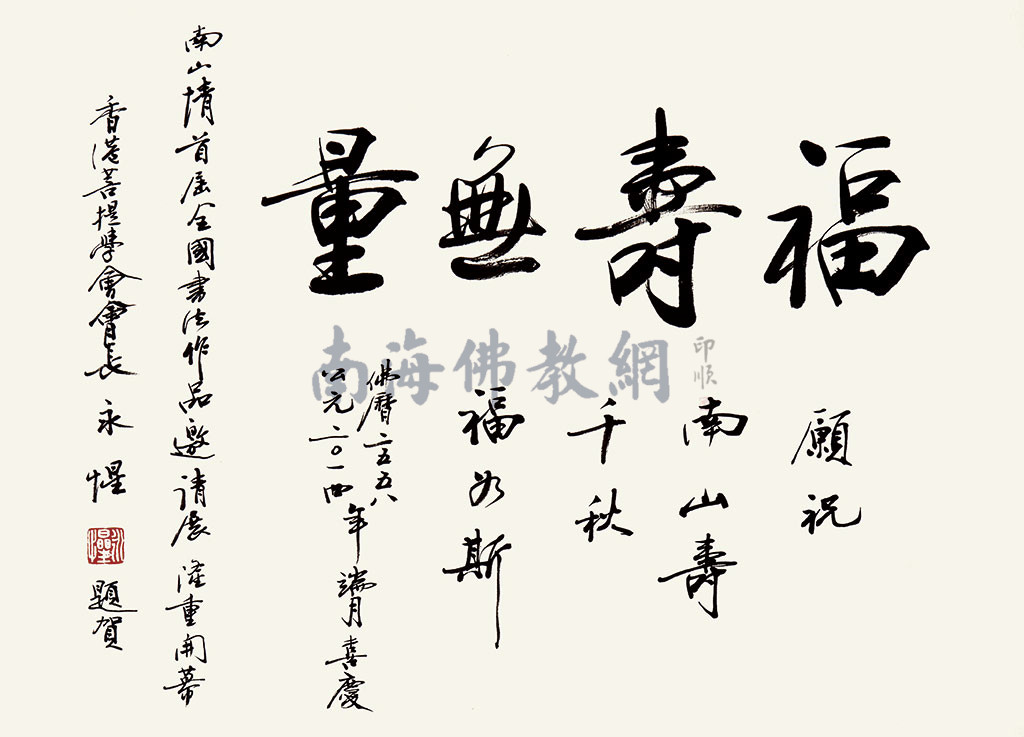 福壽無量
願祝
南山壽
千秋
福如斯
佛曆二五五八
公元二〇一四年端月喜慶
南山情首屆全國書法作品邀請展隆重開幕
香港菩提學會會長 永惺 題賀
永惺
南海佛教網
印順